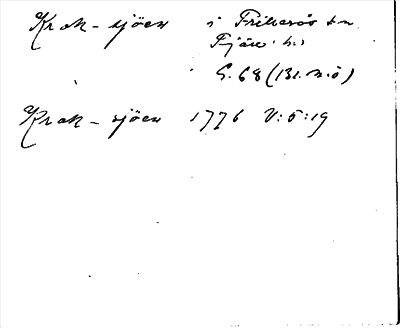 Krok-sjöen i Frillesås s:n
Fjäre h:d
G. 68 (131. n. ö)
Krok-sjöen 1776 V:5:19